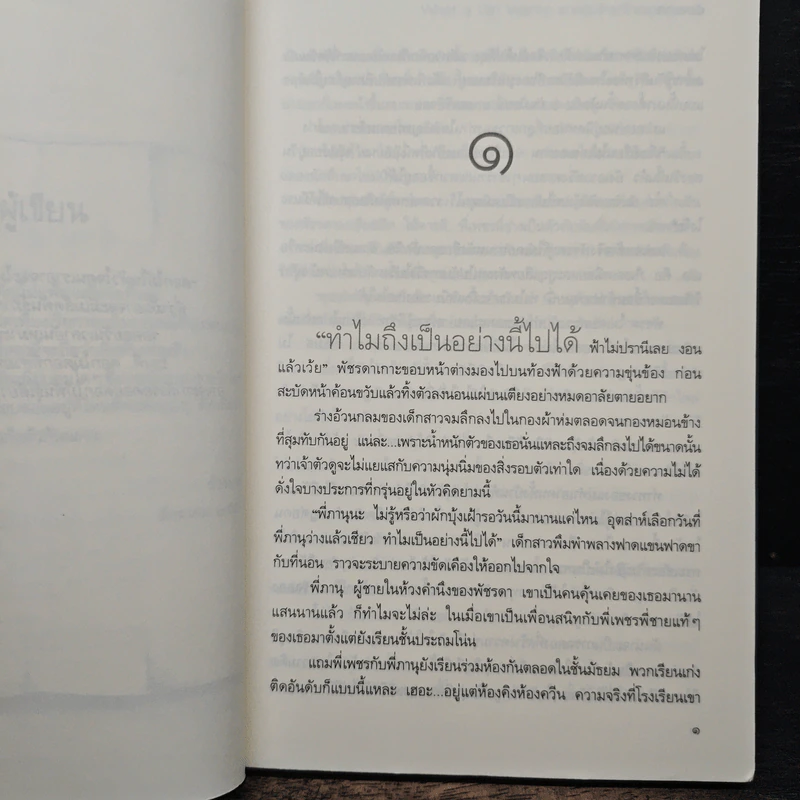 ๑
“ทำไมถึงเป็นอย่างนี้ไปได้ ฟ้าไม่ปรานีเลย งอน
แล้วเว้ย” พัชรดาเกาะขอบหน้าต่างมองไปบนท้องฟ้าด้วยความขุ่นข้อง ก่อน
สะบัดหน้าค้อนขวับแล้วทิ้งตัวลงนอนแผ่บนเตียงอย่างหมดอาลัยตายอยาก
ร่างอ้วนกลมของเด็กสาวจมลึกลงไปในกองผ้าห่มตลอดจนกองหมอนข้าง
ที่สุมทับกันอยู่ แน่ละ...เพราะน้ำหนักตัวของเธอนั่นแหละถึงจมลึกลงไปได้ขนาดนั้น
ทว่าเจ้าตัวดูจะไม่แยแสกับความนุ่มนิ่มของสิ่งรอบตัวเท่าใด เนื่องด้วยความไม่ได้
ดั่งใจบางประการที่กรุ่นอยู่ในหัวคิดยามนี้
“พี่ภานุนะ ไม่รู้หรือว่าผักบุ้งเฝ้ารอวันนี้มานานแค่ไหน อุตส่าห์เลือกวันที่
พี่ภานุว่างแล้วเชียว ทำไมเป็นอย่างนี้ไปได้” เด็กสาวพึมพำพลางฟาดแขนฟาดขา
กับที่นอน ราวจะระบายความขัดเคืองให้ออกไปจากใจ
พี่ภานุ ผู้ชายในห้วงคำนึงของพัชรดา เขาเป็นคนคุ้นเคยของเธอมานาน
แสนนานแล้ว ก็ทำไมจะไม่ล่ะ ในเมื่อเขาเป็นเพื่อนสนิทกับพี่เพชรพี่ชายแท้ๆ
ของเธอมาตั้งแต่ยังเรียนชั้นประถมโน่น
แถมพี่เพชรกับพี่ภานุยังเรียนร่วมห้องกันตลอดในชั้นมัธยม พวกเรียนเก่ง
ติดอันดับก็แบบนี้แหละ เฮอะ...อยู่แต่ห้องคิงห้องควีน ความจริงที่โรงเรียนเขา
๑